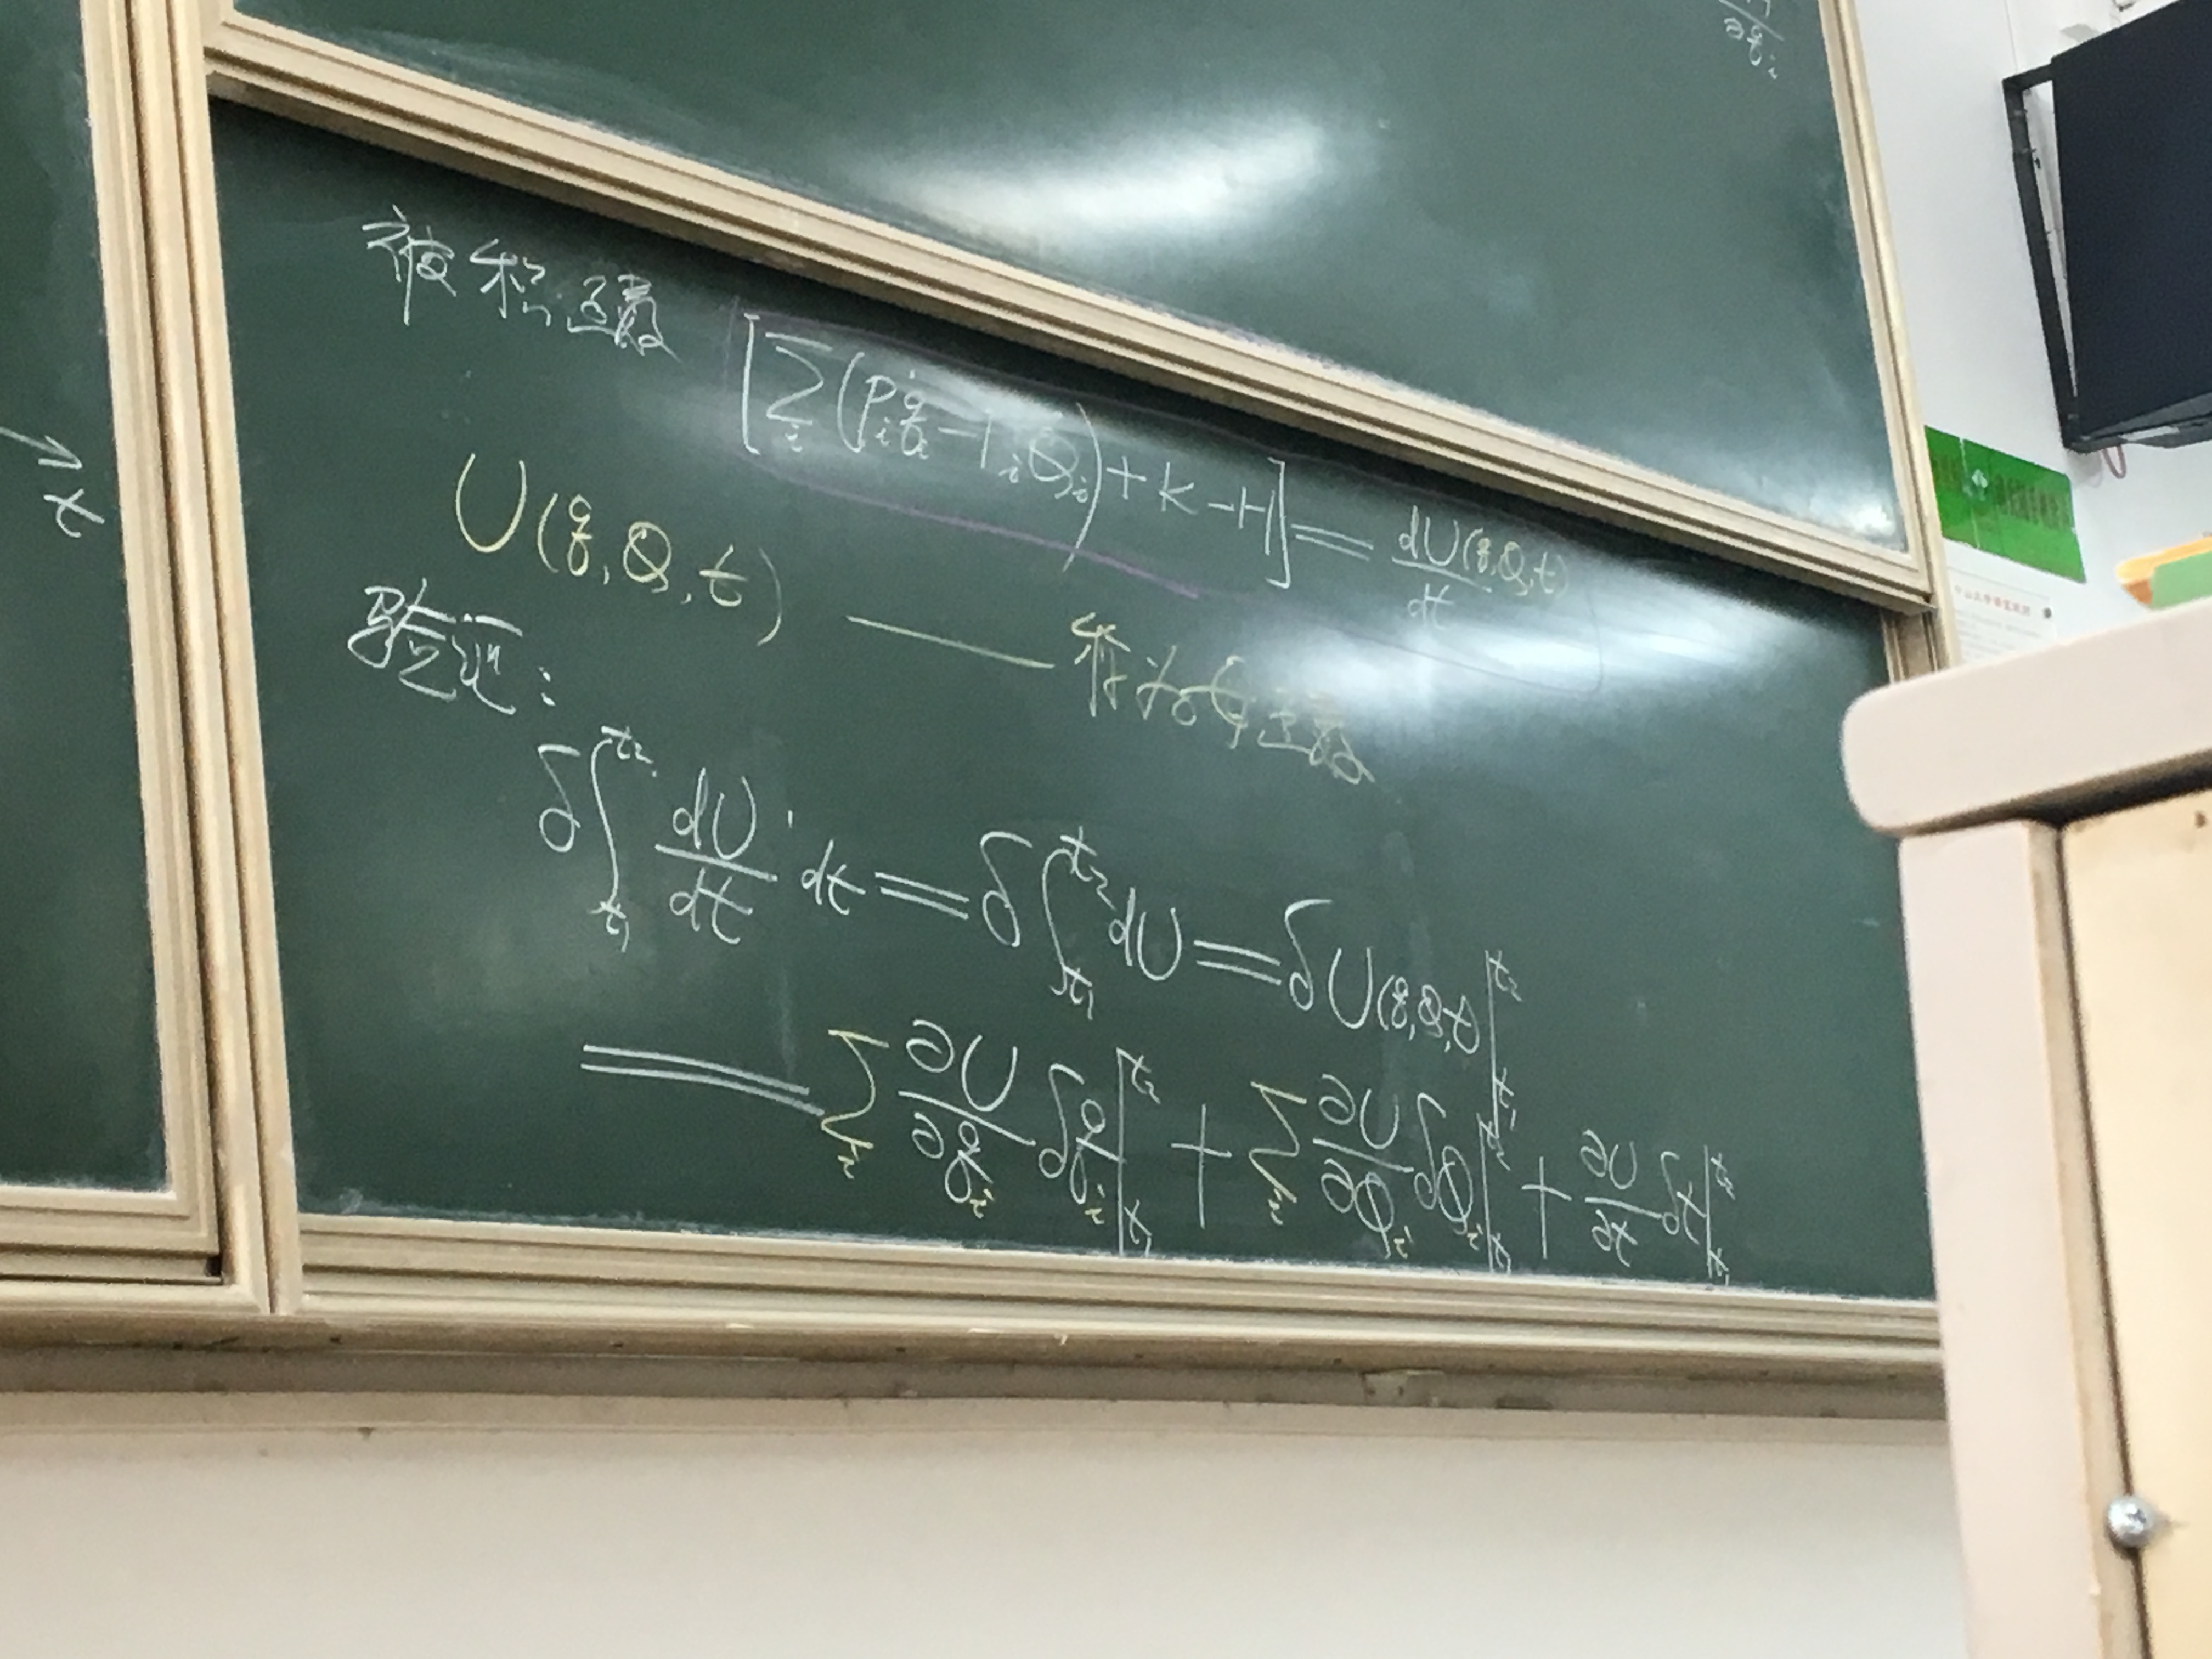 被积函数 [∑ᵢ(pᵢq̇ᵢ - PᵢQ̇ᵢ) + K - H] = dU(q,Q,t)/dt
U(q,Q,t) —— 称为母函数
验证:
δ∫_{t₁}^{t₂} dU/dt · dt = δ∫_{t₁}^{t₂} dU = δU(q,Q,t)|_{t₁}^{t₂}
= ∑ᵢ ∂U/∂qᵢ δqᵢ|_{t₁}^{t₂} + ∑ᵢ ∂U/∂Qᵢ δQᵢ|_{t₁}^{t₂} + ∂U/∂t δt|_{t₁}^{t₂}
t
∂qᵢ